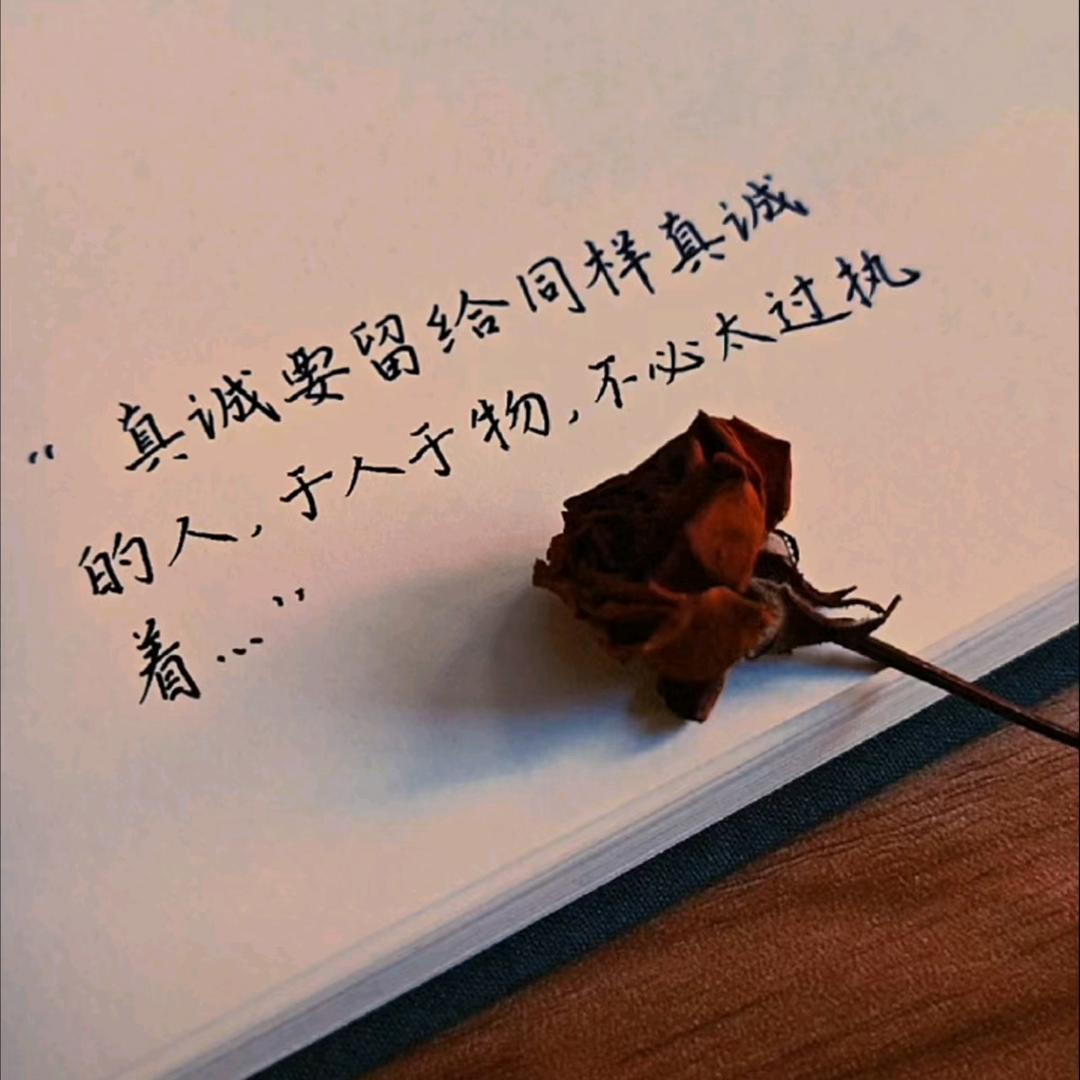 “真诚要留给同样真诚
的人，于人于物，不必太过执
着...”